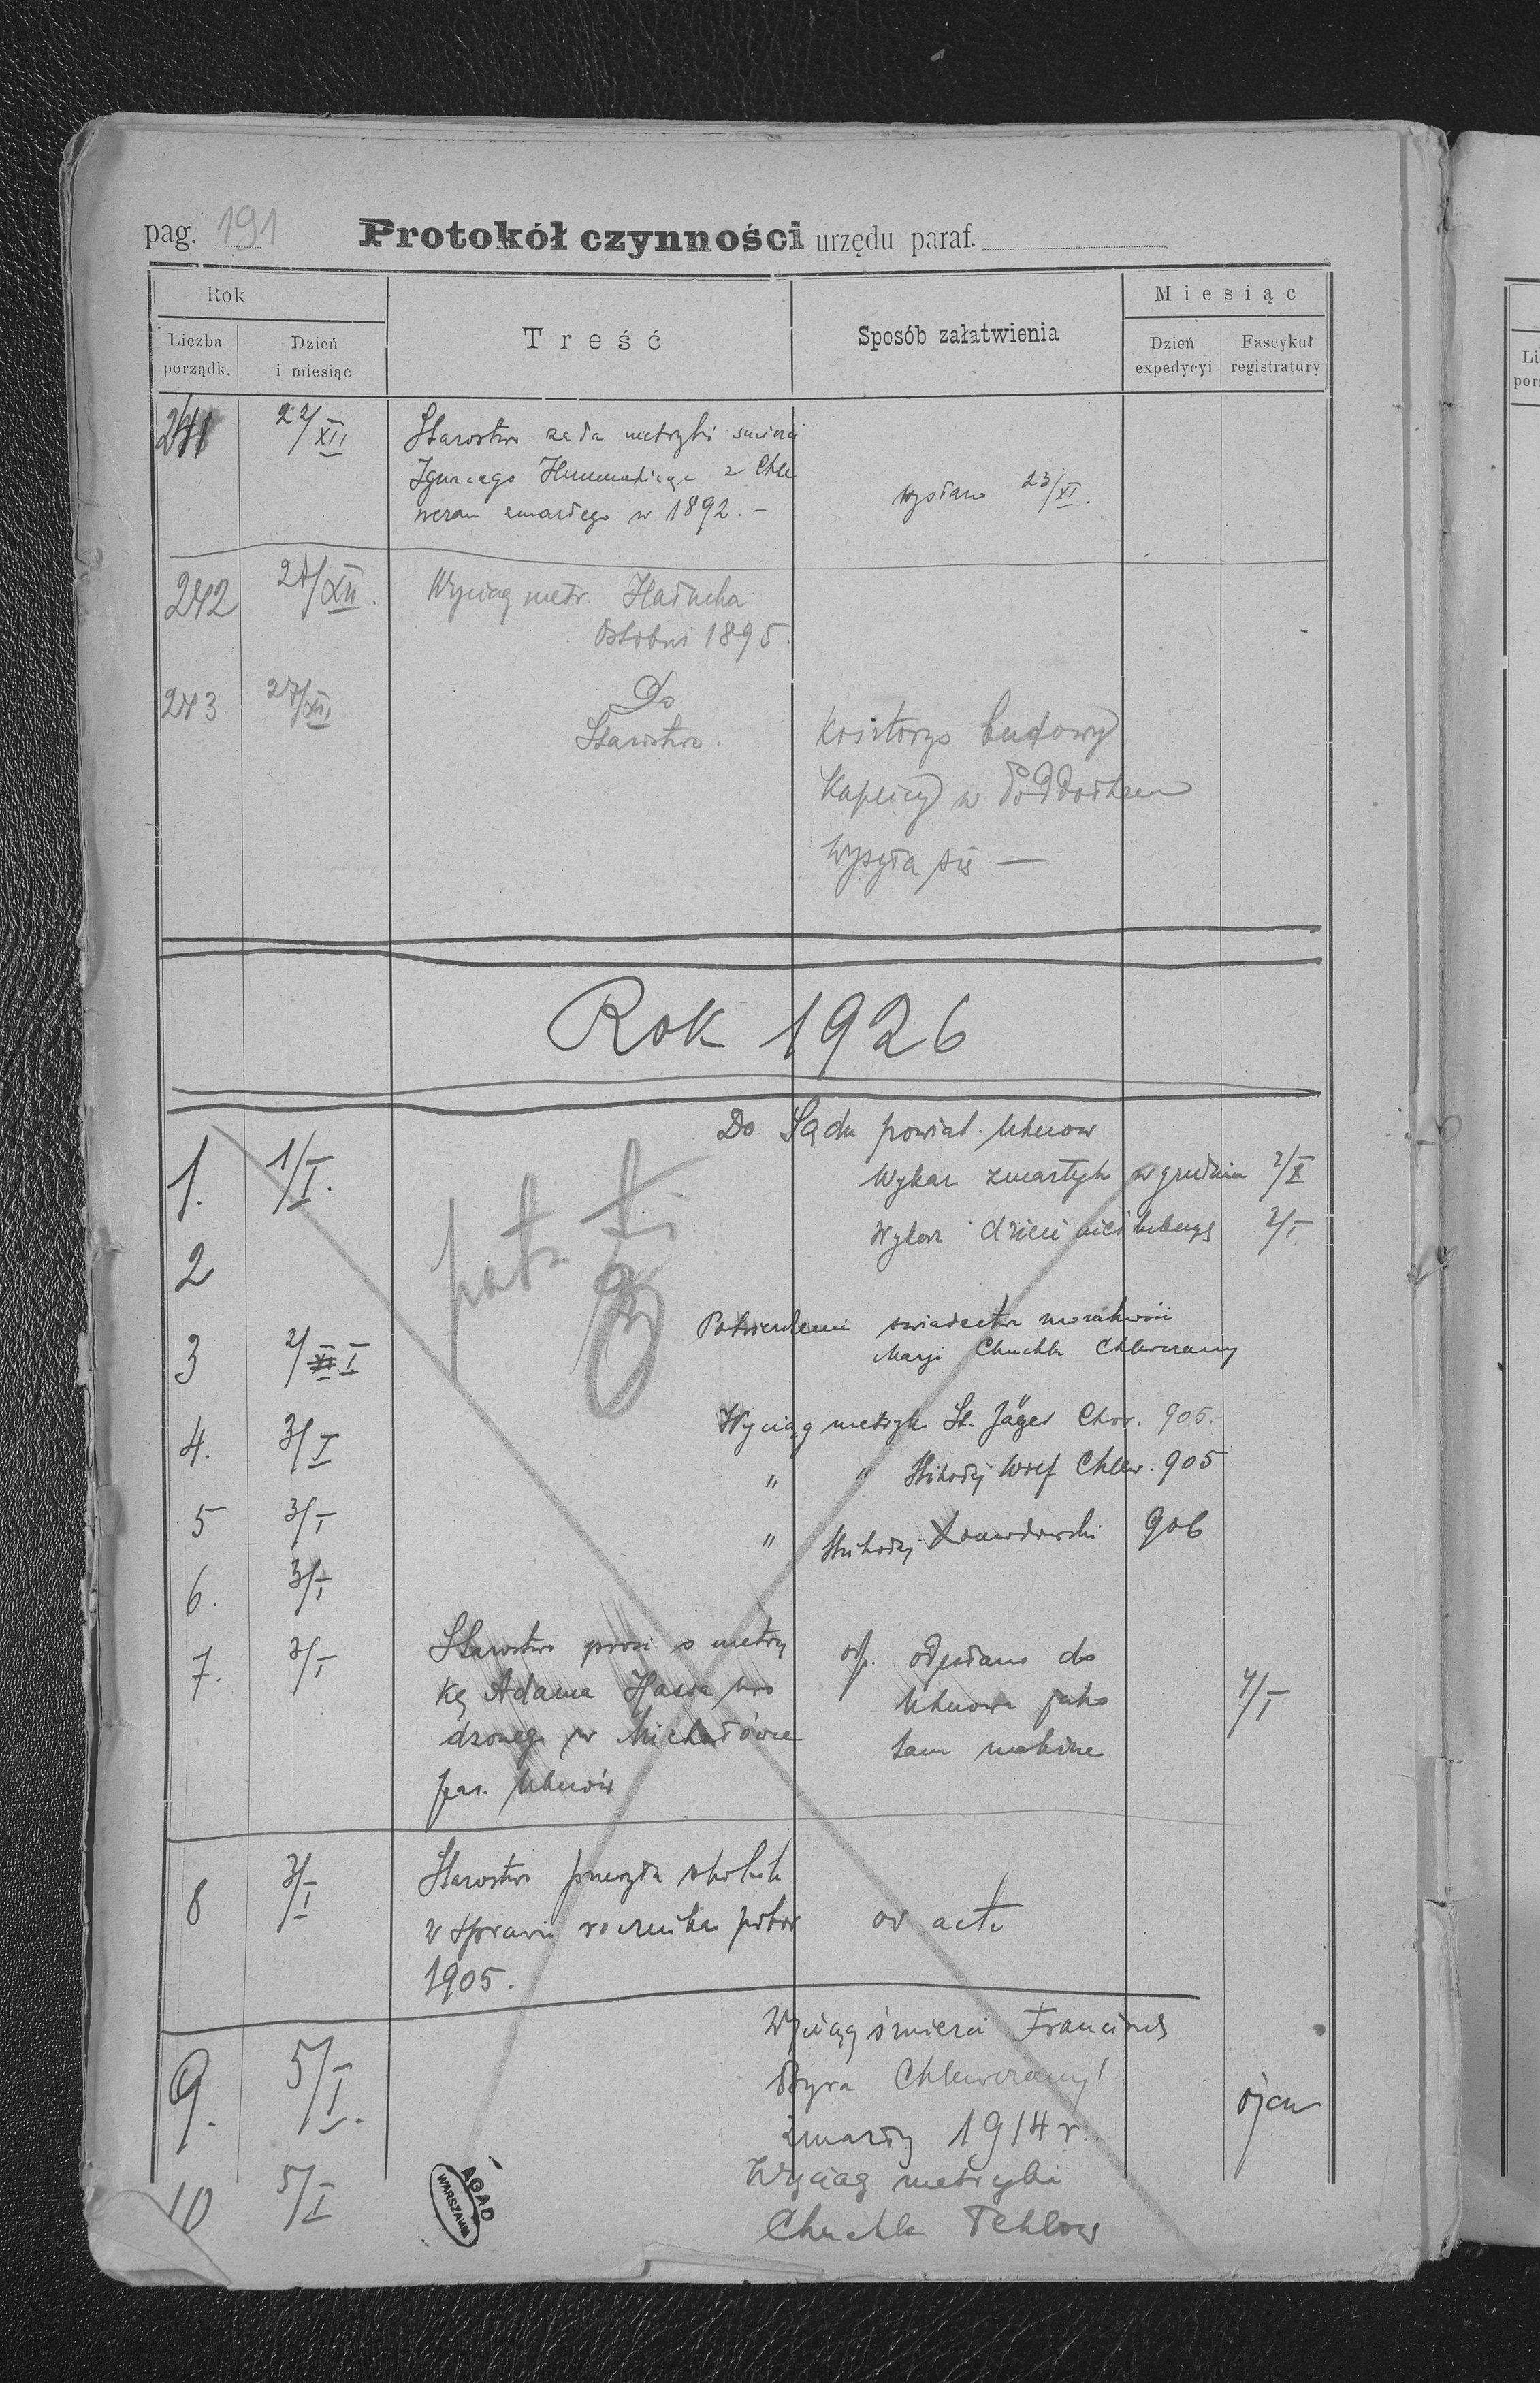 pag. 191 Protokół czynności urzędu paraf.
Rok
Miesiąc
Liczba porządk.
Dzień i miesiąc
Treść
Sposób załatwienia
Dzień expedycyi
Fascykuł registratury
241 22/XII Starostwo żąda metryki śmierci
Ignacego z Chle
wczan zmarłego w 1892. –
wysłano 23/XI.
242 27/XII. Wyciąg metr. Haducha
1895.
243. 27/XII Do
Starostwa.
Kosztorys budowy
Kaplicy w
wysyła się —
Rok 1926
Do Sądu powiat. Uhnow
1. 1/I. Wykaz zmarłych w grudniu 2/I
2 Wykaz dzieci nieślubnych 2/I
3 2/I Potwierdzenie świadectwa moralności
Marji Chuchla Chlewczany
4. 3/I Wyciąg metryk St. Jäger Chor. 905.
5 3/I " " Mikołaj Wolf Chlew. 905
6. 3/I " Mikołaj 906
7. 3/I Starostwo prosi o metry
kę Adama Hassa uro
dzonego w Michałówce
par. Uhnów
odp. odesłano do
Uhnowa jako
tam
4/I
8 3/I Starostwo przesyła
w sprawie rocznika pobor
1905.
ad acta
9. 5/I. Wyciąg śmierci
Chlewczany
zmarły 1914 r.
ojcu
10 5/I Wyciąg metryki
Chuchla Tehlow
AGAD
WARSZAWA
Li
por